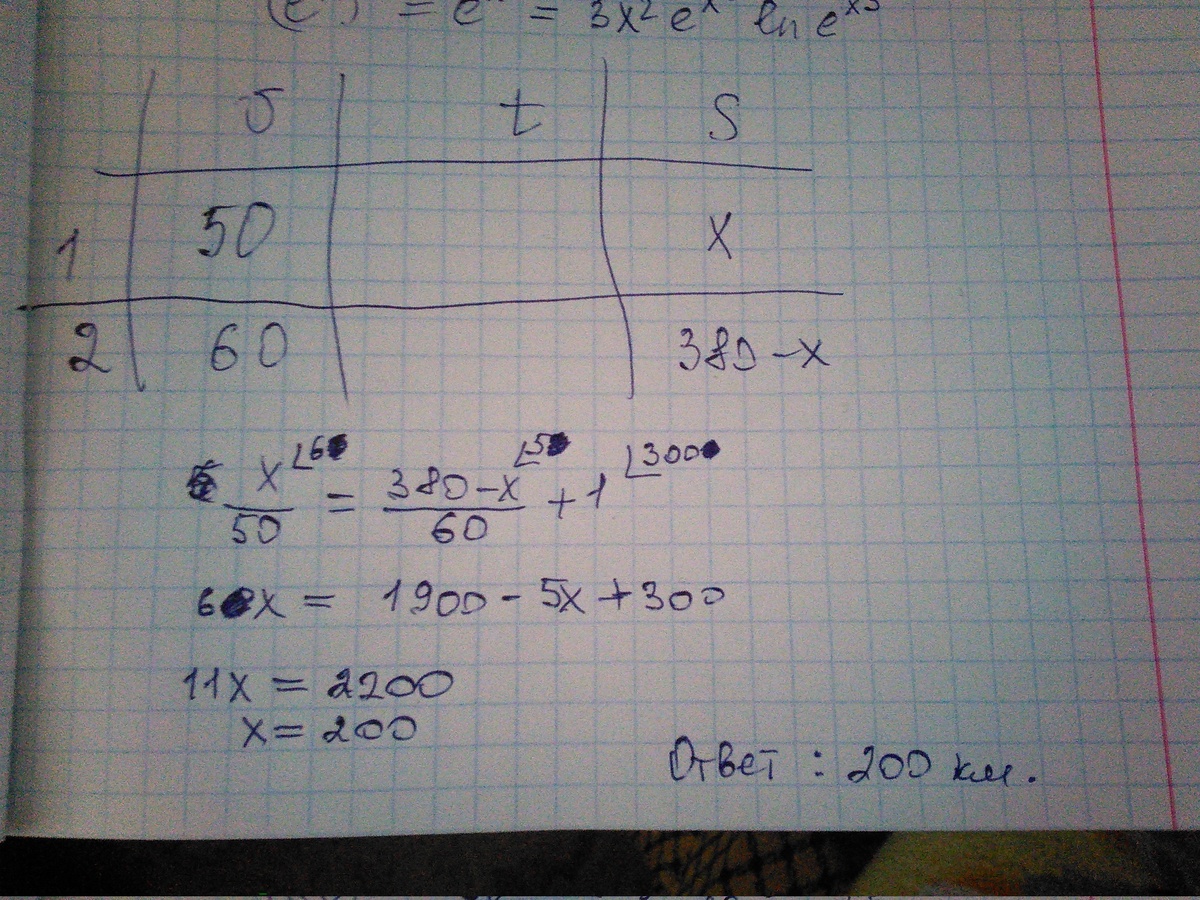 (e ) = e = 3x² eˣ ln e^x³
υ t S
1 50 x
2 60 380-x
x/50 ⌊6 = (380-x)/60 ⌊5 + 1 ⌊300
6x = 1900 - 5x + 300
11x = 2200
x = 200
Ответ : 200 км.